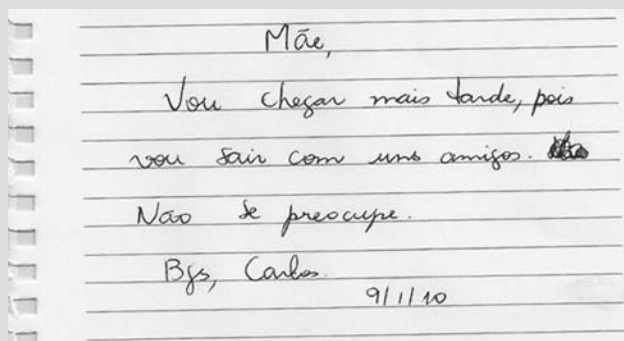 Mãe,
Vou chegar mais tarde, pois
vou sair com uns amigos.
Não se preocupe.
Bjs, Carlos.
9/1/10